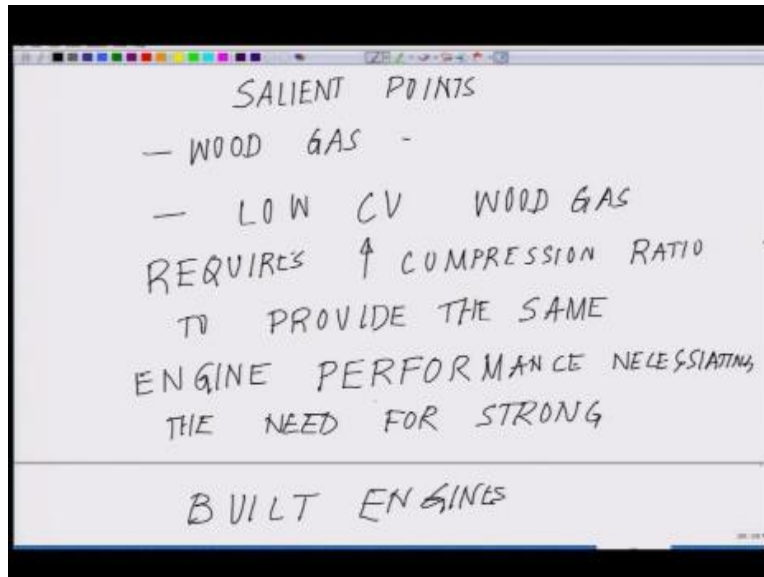 SALIENT POINTS
— WOOD GAS -
— LOW CV WOOD GAS
REQUIRES ↑ COMPRESSION RATIO
TO PROVIDE THE SAME
ENGINE PERFORMANCE NECESSIATING
THE NEED FOR STRONG
BUILT ENGINES